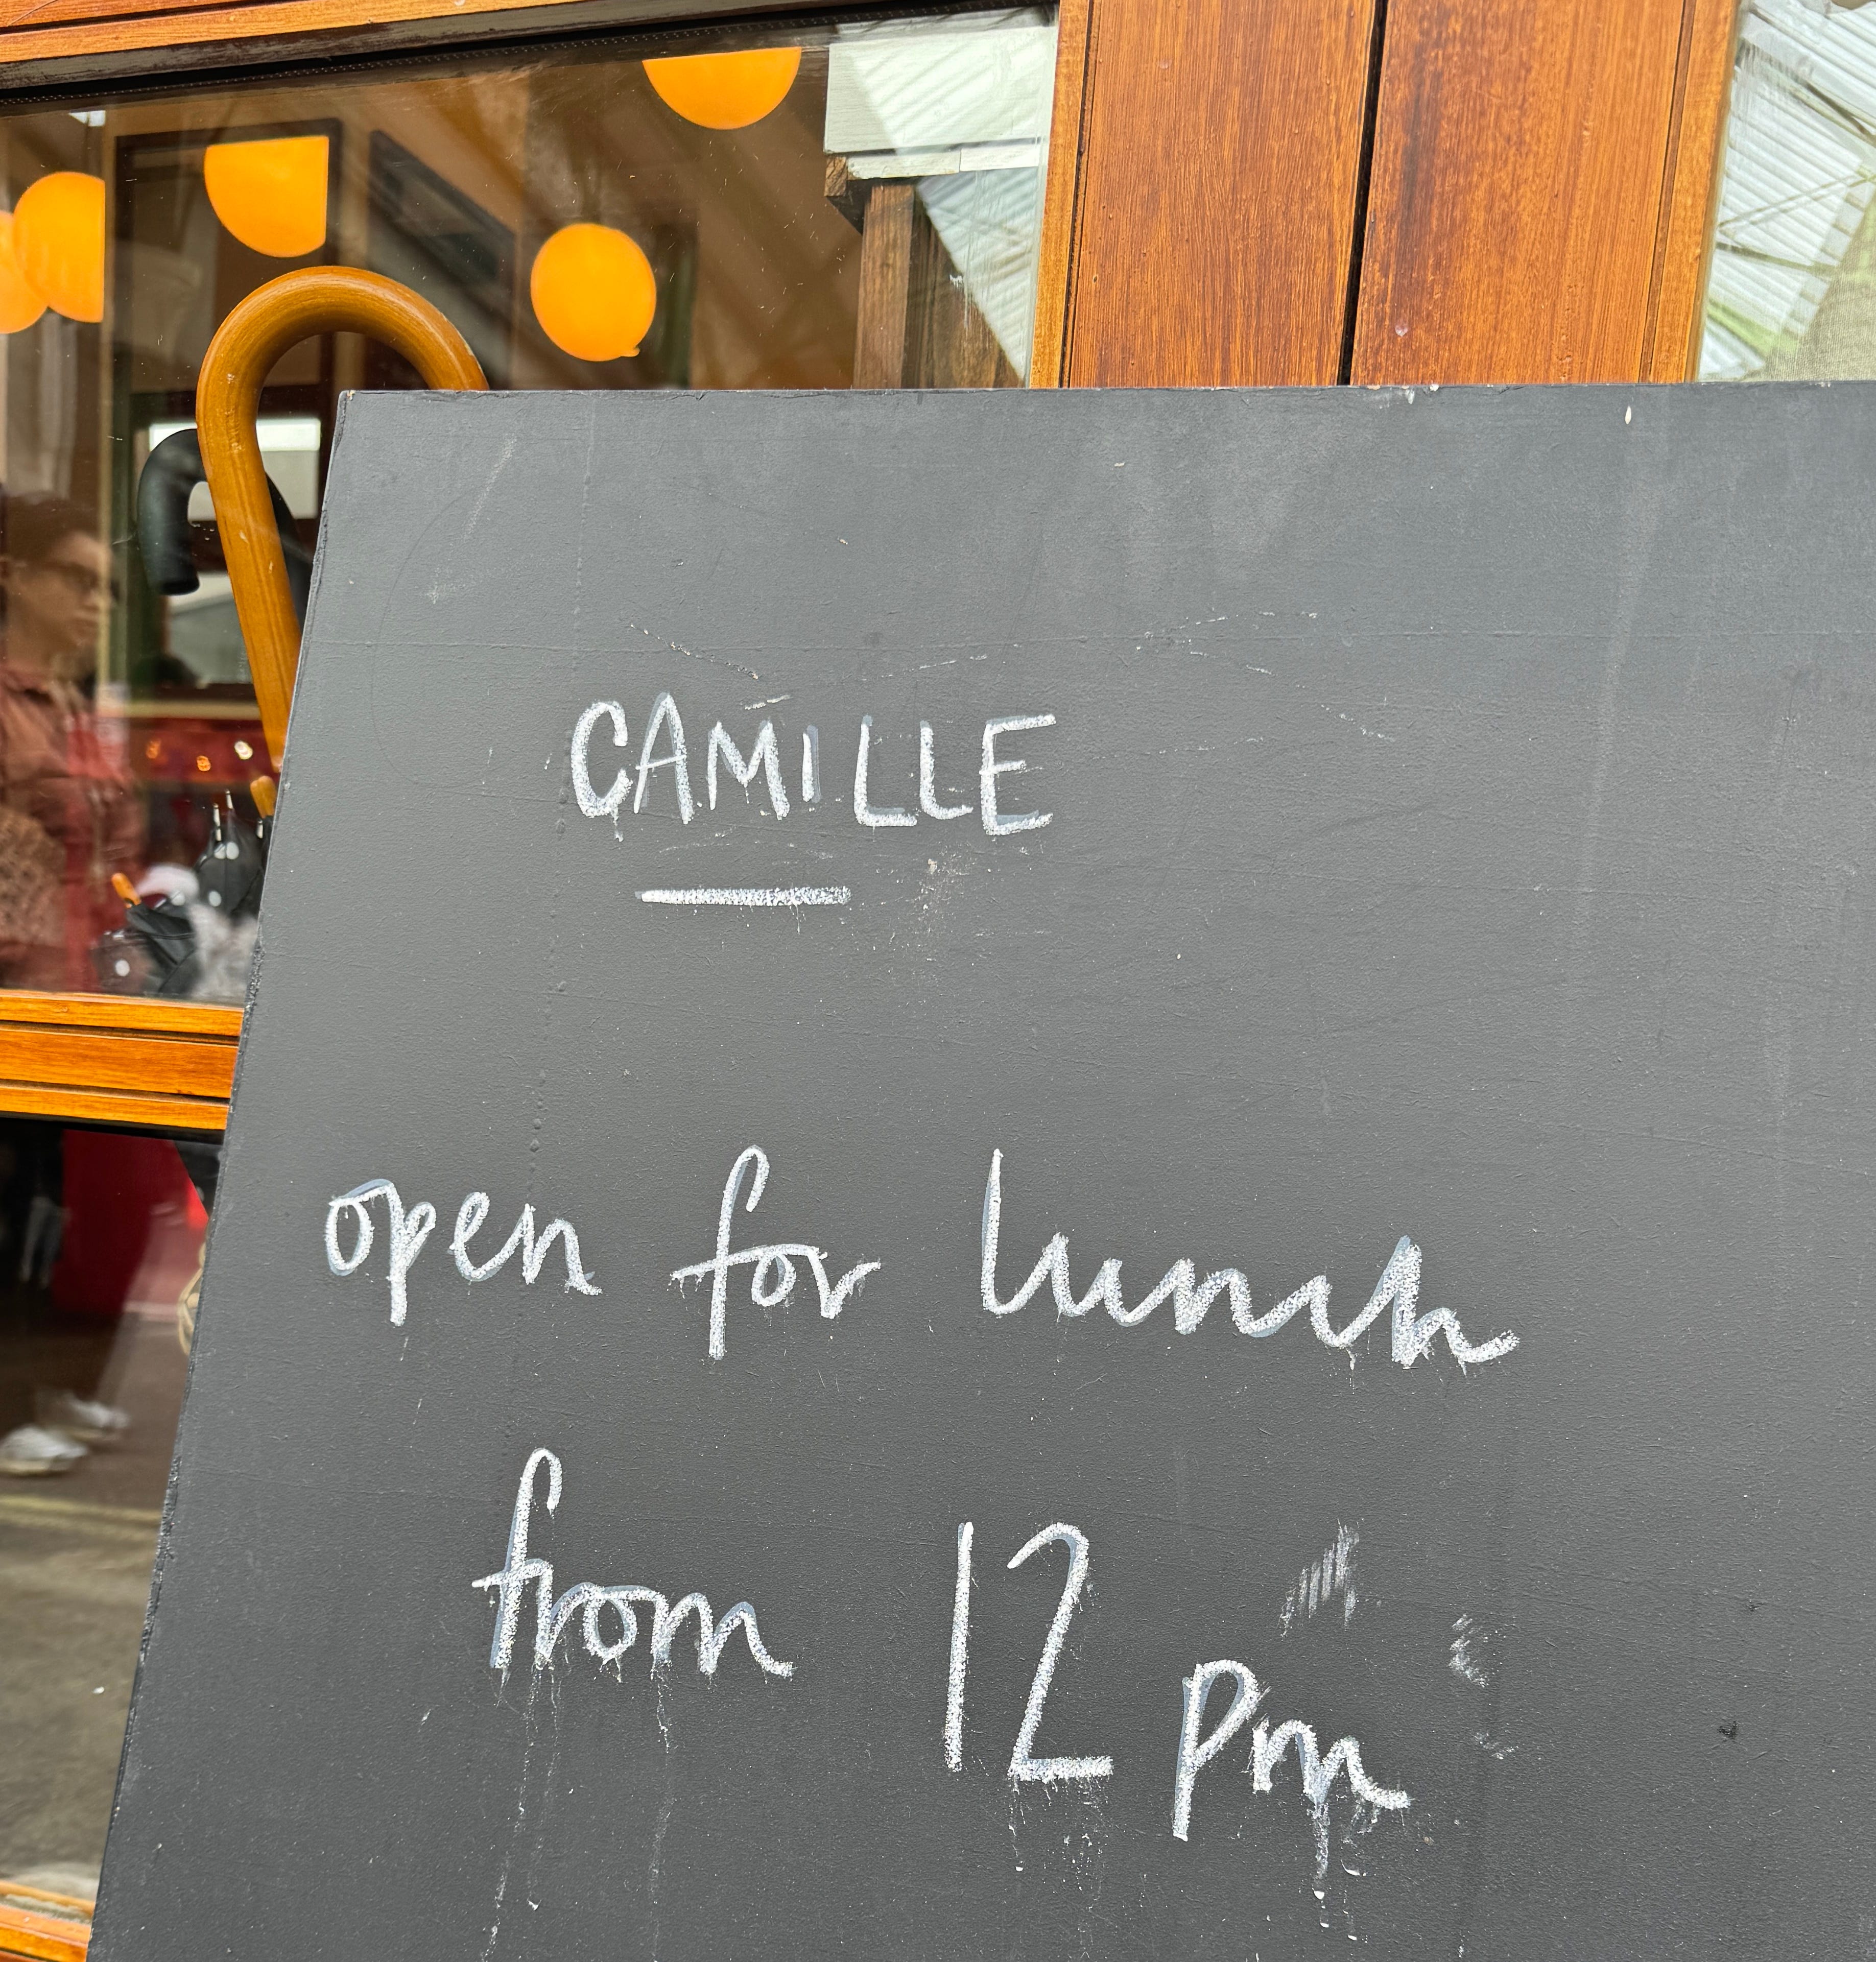 CAMILLE
open for lunch
from 12 pm